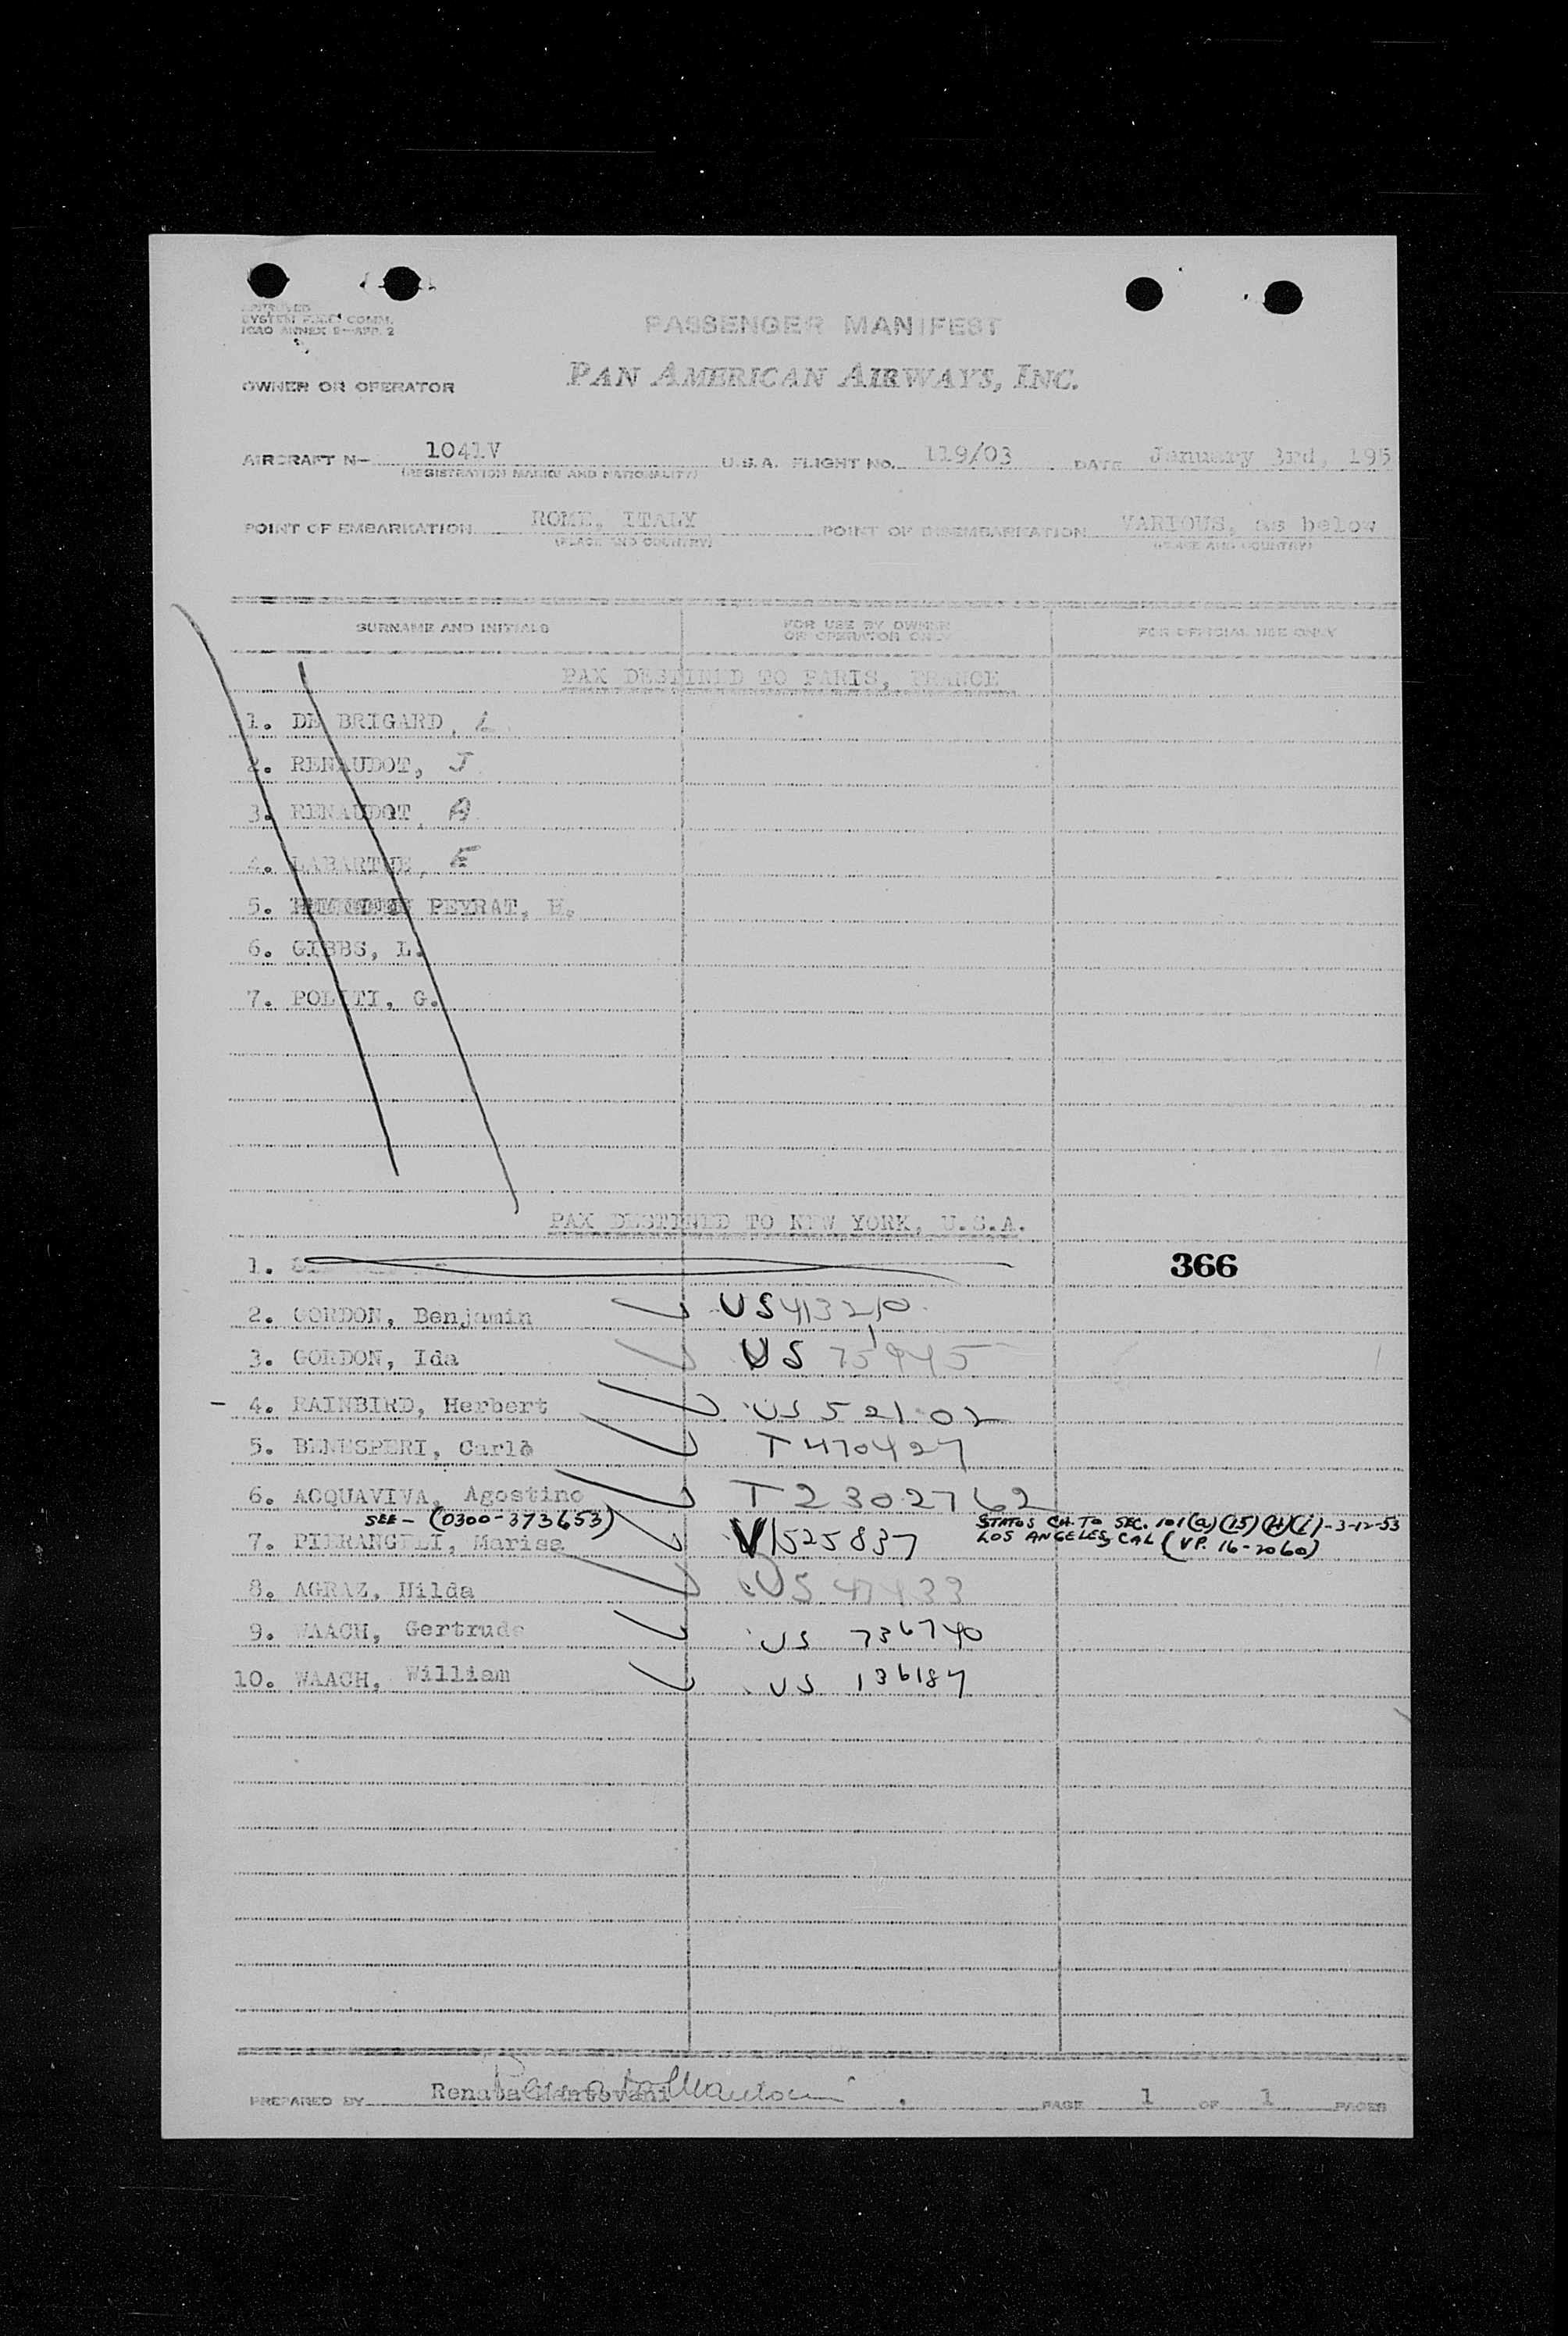 APPROVED
SYSTEM F.&C. COMM.
ICAO ANNEX 9—APP. 2
PASSENGER MANIFEST
OWNER OR OPERATOR PAN AMERICAN AIRWAYS, INC.
AIRCRAFT N— 1041V U.S.A. FLIGHT NO. 119/03 DATE January 3rd, 195
(REGISTRATION MARKS AND NATIONALITY)
POINT OF EMBARKATION ROME, ITALY POINT OF DISEMBARKATION VARIOUS, as below
(PLACE AND COUNTRY) (PLACE AND COUNTRY)
SURNAME AND INITIALS FOR USE BY OWNER OR OPERATOR ONLY FOR OFFICIAL USE ONLY
PAX DESTINED TO PARIS, FRANCE
1. DE BRIGARD, L
2. RENAUDOT, J
3. RENAUDOT, A
4. LABARTHE, E
5. PEYRAT, H.
6. GIBBS, L.
7. POLITI, G.
PAX DESTINED TO NEW YORK, U.S.A.
1. 366
2. GORDON, Benjamin US 413210
3. GORDON, Ida US 75945
- 4. RAINBIRD, Herbert US 52102
5. BENESPERI, Carlo T 470427
6. ACQUAVIVA, Agostino T 2302762
SEE - (0300-373653) STATUS CH. TO SEC. 101(a)(15)(H)(i) - 3-12-53
7. PIERANGELI, Marisa V1525837 LOS ANGELES, CAL (VP. 16-2060)
8. AGRAZ, Hilda US 47433
9. WAACH, Gertrude US 736740
10. WAACH, William US 136187
PREPARED BY Renata Mantovani PAGE 1 OF 1 PAGES